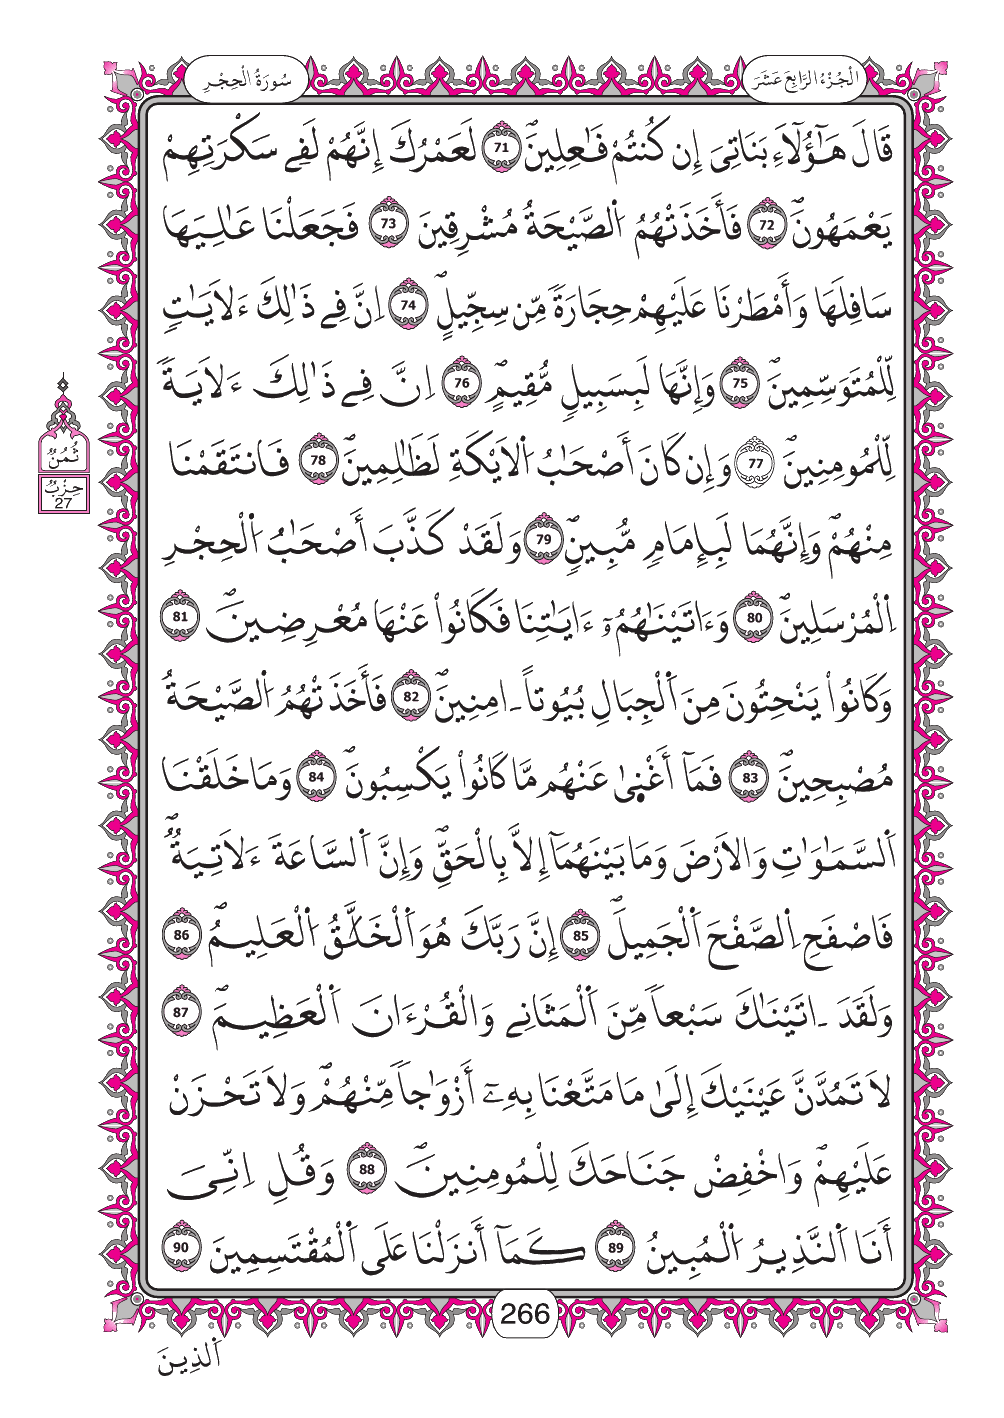 الْجُزْءُ الرَّابِعَ عَشَرَ
سُورَةُ الْحِجْرِ
قَالَ هَٰٓؤُلَآءِ بَنَاتِيَ إِن كُنتُمْ فَٰعِلِينَۖ 71 لَعَمْرُكَ إِنَّهُمْ لَفِے سَكْرَتِهِمْ
يَعْمَهُونَۖ 72 فَأَخَذَتْهُمُ اُلصَّيْحَةُ مُشْرِقِينَ 73 فَجَعَلْنَا عَٰلِيَهَا
سَافِلَهَا وَأَمْطَرْنَا عَلَيْهِمْ حِجَارَةٗ مِّن سِجِّيلٍۖ 74 اِنَّ فِے ذَٰلِكَ ءَلَايَٰتٖ
لِّلْمُتَوَسِّمِينَۖ 75 وَإِنَّهَا لَبِسَبِيلٖ مُّقِيمٍۖ 76 اِنَّ فِے ذَٰلِكَ ءَلَايَةٗ
لِّلْمُومِنِينَۖ 77 وَإِن كَانَ أَصْحَٰبُ اُلَايْكَةِ لَظَٰلِمِينَۖ 78 فَانتَقَمْنَا
مِنْهُمْۖ وَإِنَّهُمَا لَبِإِمَامٖ مُّبِينٖۖ 79 وَلَقَدْ كَذَّبَ أَصْحَٰبُ اُلْحِجْرِ
اِلْمُرْسَلِينَۖ 80 وَءَاتَيْنَٰهُمُۥٓ ءَايَٰتِنَا فَكَانُواْ عَنْهَا مُعْرِضِينَۖ 81
وَكَانُواْ يَنْحِتُونَ مِنَ اَلْجِبَالِ بُيُوتاً ـ امِنِينَۖ 82 فَأَخَذَتْهُمُ اُلصَّيْحَةُ
مُصْبِحِينَۖ 83 فَمَآ أَغْنٜىٰ عَنْهُم مَّا كَانُواْ يَكْسِبُونَۖ 84 وَمَا خَلَقْنَا
اَلسَّمَٰوَٰتِ وَالَارْضَ وَمَا بَيْنَهُمَآ إِلَّا بِالْحَقِّۖ وَإِنَّ اَلسَّاعَةَ ءَلَاتِيَةٞۖ
فَاصْفَحِ اِلصَّفْحَ اَلْجَمِيلَۖ 85 إِنَّ رَبَّكَ هُوَ اَلْخَلَّٰقُ اُلْعَلِيمُۖ 86
وَلَقَدَ ـ اتَيْنَٰكَ سَبْعاٗ مِّنَ اَلْمَثَانِے وَالْقُرْءَانَ اَلْعَظِيمَۖ 87
لَا تَمُدَّنَّ عَيْنَيْكَ إِلَىٰ مَا مَتَّعْنَا بِهِۦٓ أَزْوَٰجاٗ مِّنْهُمْۖ وَلَا تَحْزَنْ
عَلَيْهِمْۖ وَاخْفِضْ جَنَاحَكَ لِلْمُومِنِينَۖ 88 وَقُلِ اِنِّيَ
أَنَا اَلنَّذِيرُ اُلْمُبِينُ 89 كَمَآ أَنزَلْنَا عَلَى اَلْمُقْتَسِمِينَ 90
ثُمُنٌ
حِزْبٌ
27
266
اَلذِينَ